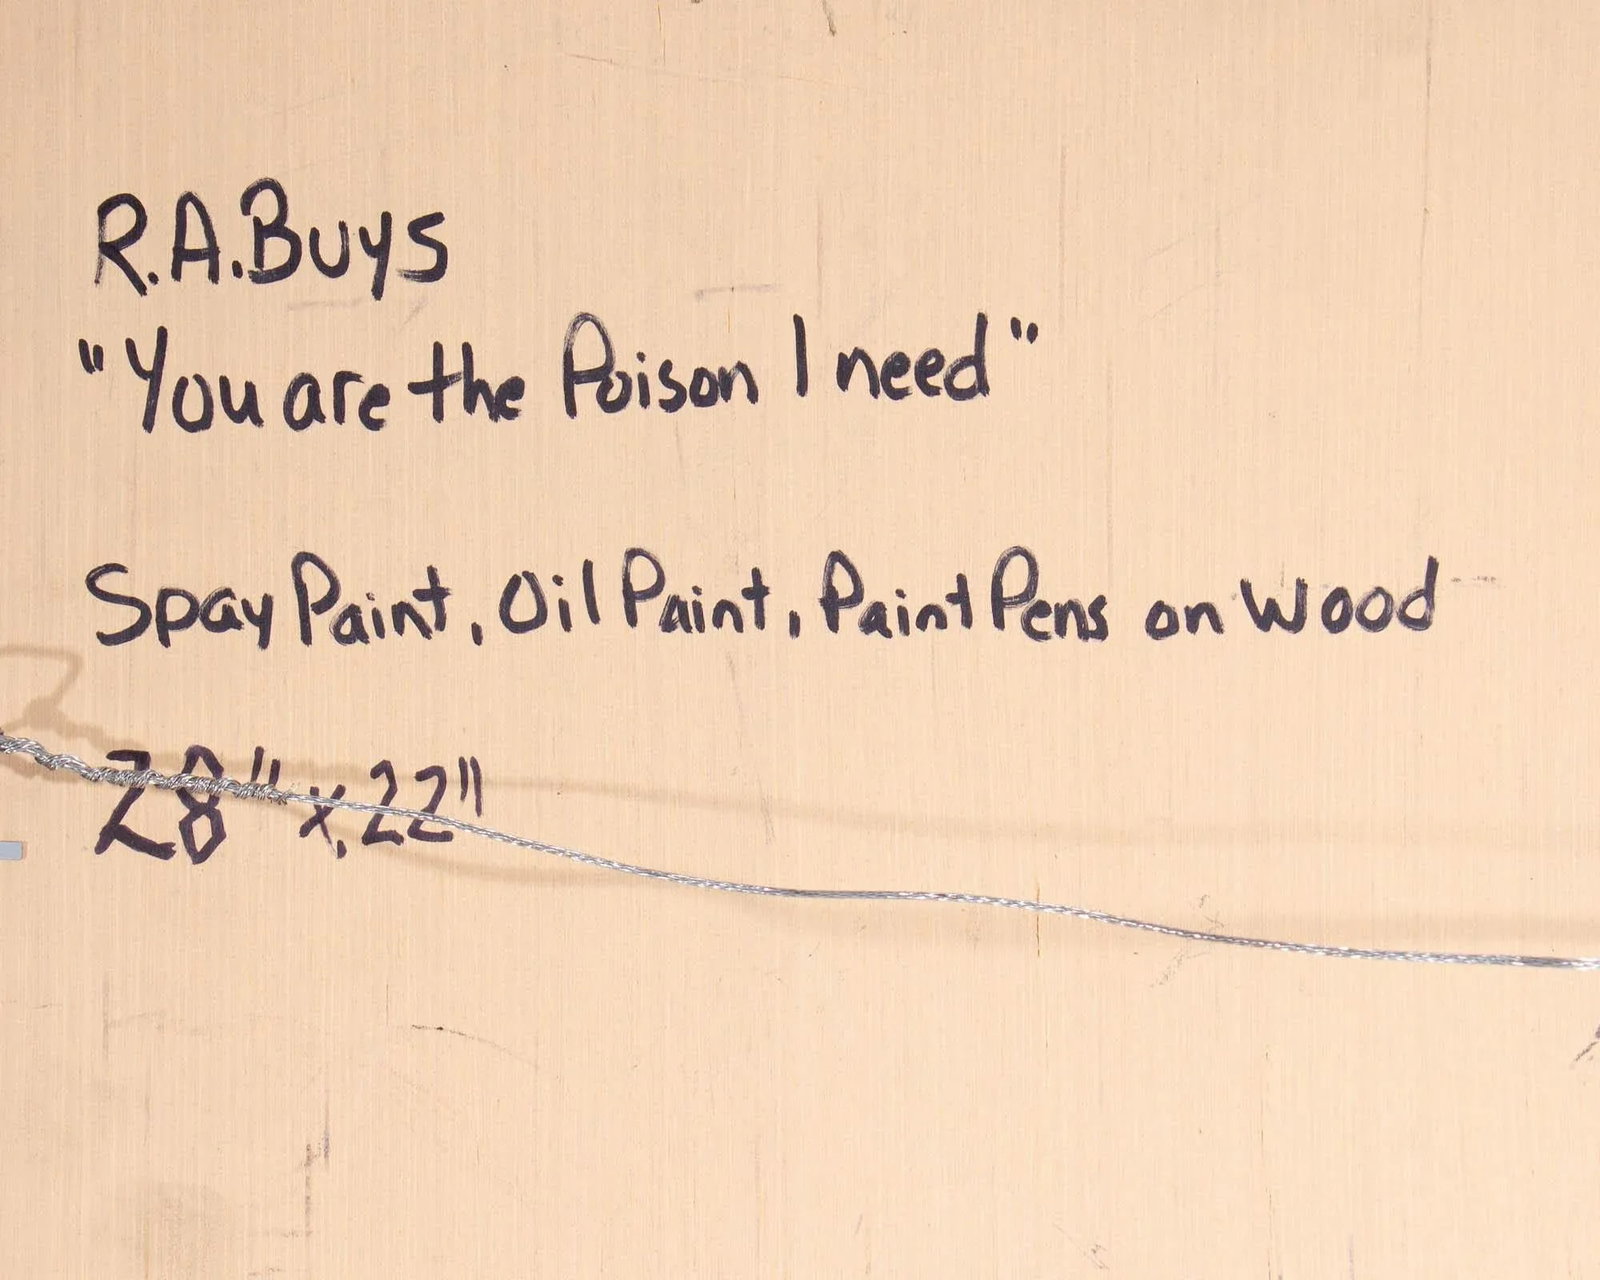 R.A.Buys
"You are the Poison I need"
Spay Paint, Oil Paint, Paint Pens on Wood
28" x 22"